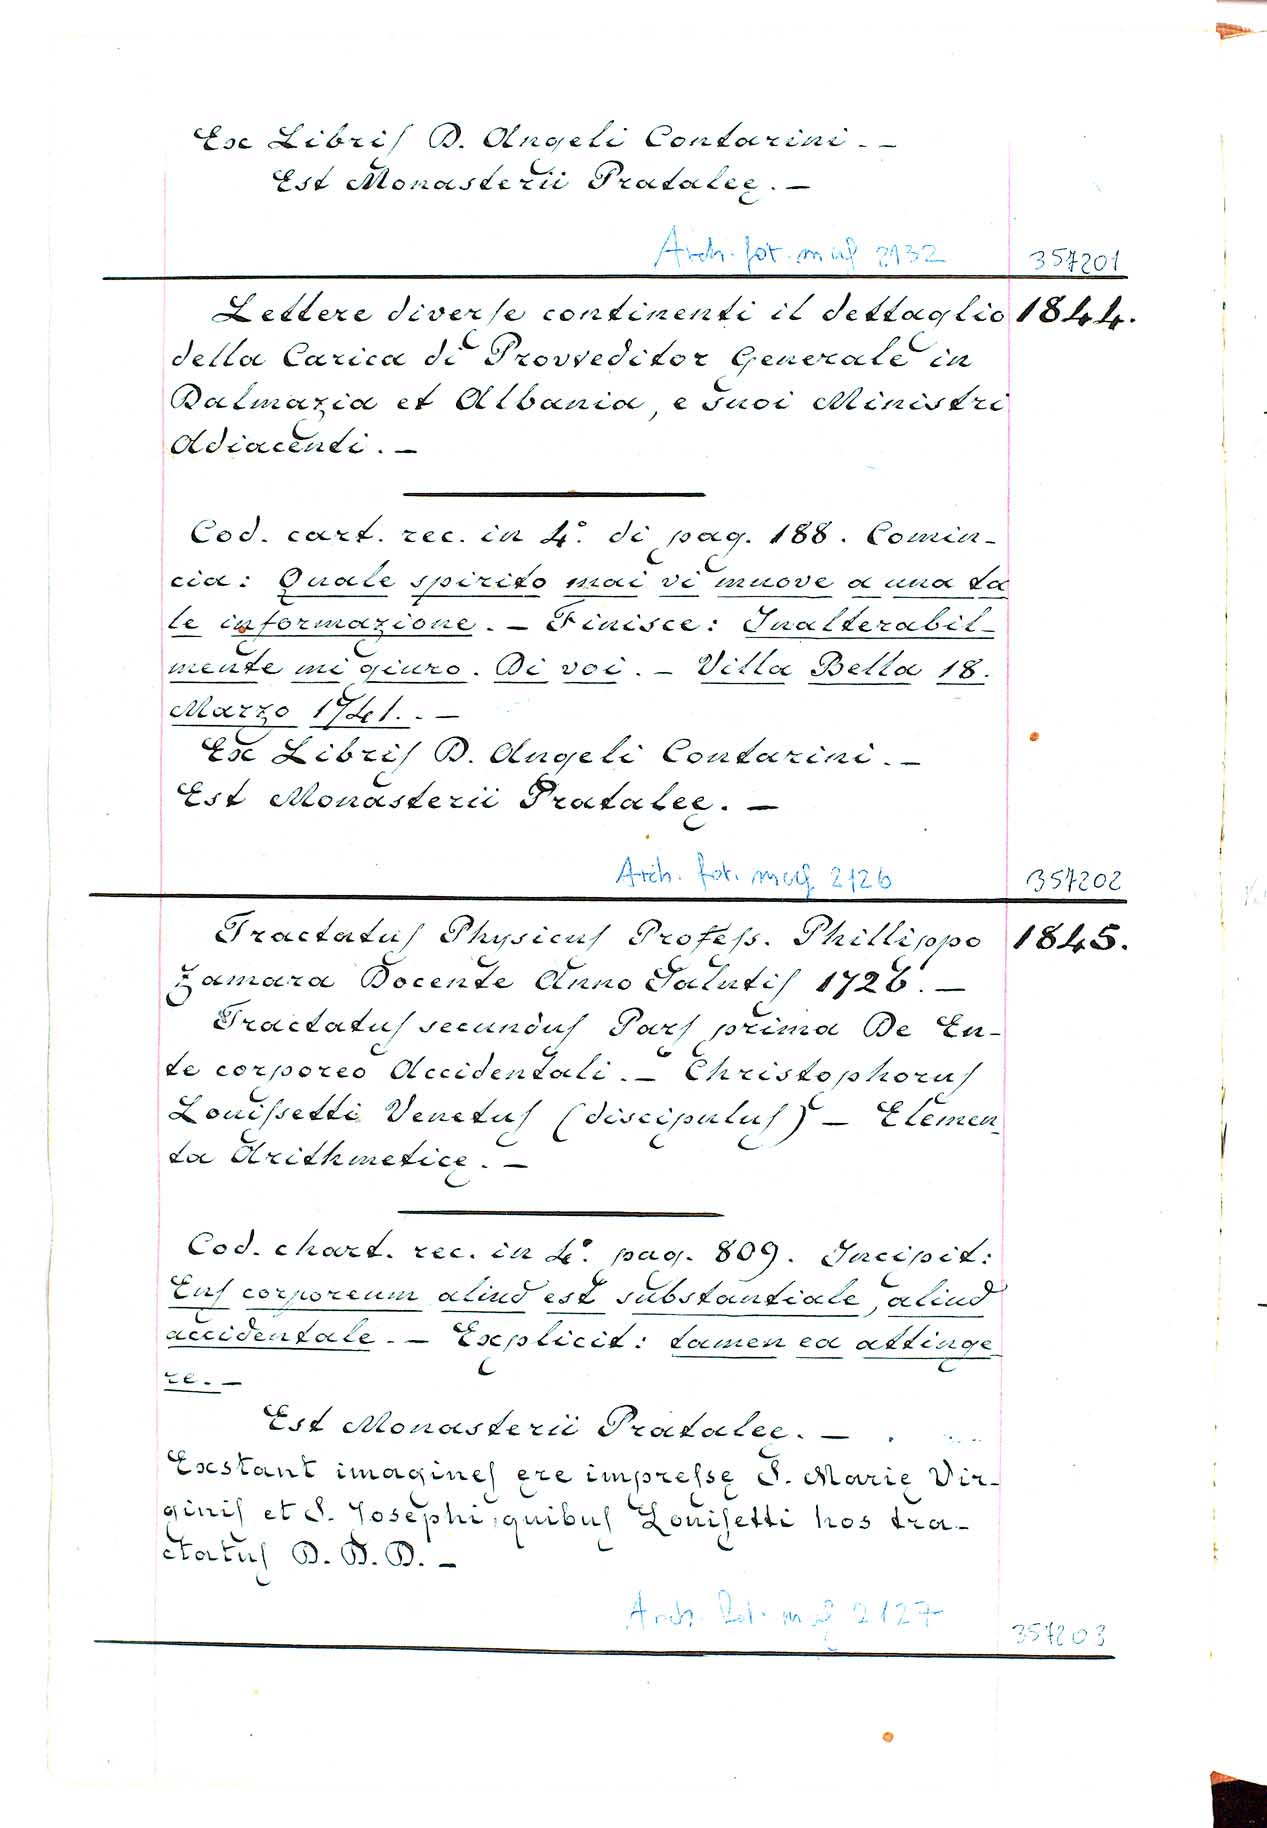 Ex Libriſ D. Angeli Contarini. –
Est Monasterii Prataleę. –
Arch. fot. maſ 2132
357201
Lettere diverſe continenti il dettaglio 1844.
della Carica di Provveditor Generale in
Dalmazia et Albania, e suoi Ministri
Adiacenti. –
Cod. cart. rec. in 4.° di pag. 188. Comin-
cia: Quale spirito mai vi muove a una ta
le informazione. – Finisce: Inalterabil-
mente mi giuro. Di voi. – Villa Bella 18.
Marzo 1741. . –
Ex Libriſ D. Angeli Contarini. –
Est Monasterii Prataleę. –
Arch. fot. maſ 2126
357202
Tractatuſ Physicuſ Profeſs. Phillippo 1845.
Zamara Docente Anno Salutiſ 1726. –
Tractatuſ secunduſ Parſ prima De En-
te corporeo Accidentali. – Christophoruſ
Louiſsetti Venetuſ (discipuluſ) – Elemen-
ta Arithmeticę. –
Cod. chart. rec. in 4.° pag. 809. Incipit:
Enſ corporeum aliud est substantiale, aliud
accidentale. – Explicit: tamen ea attinge-
re. –
Est Monasterii Prataleę. –
Exstant imagineſ ęre impreſsę S. Marię Vir-
giniſ et S. Josephi, quibuſ Louiſetti hos tra-
ctatuſ D. D. D. –
Arch. fot. maſ 2127
357203